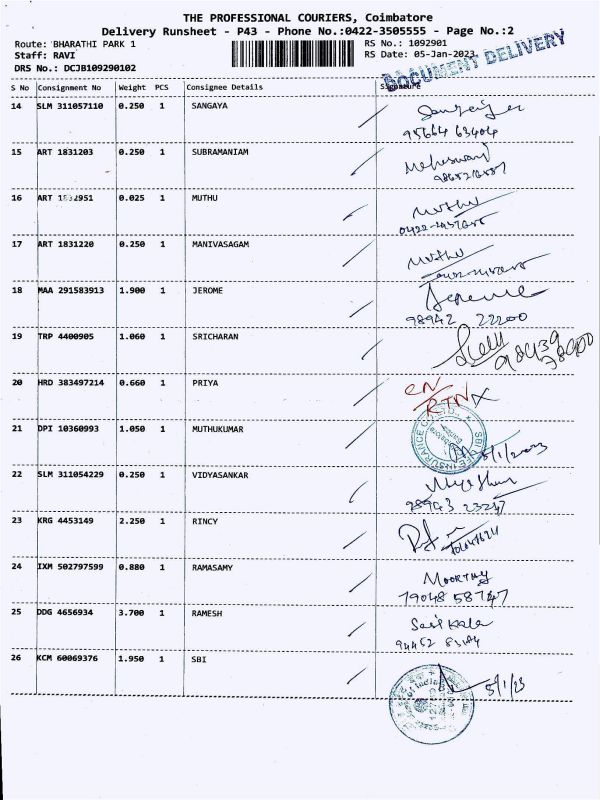 THE PROFESSIONAL COURIERS, Coimbatore
Delivery Runsheet - P43 - Phone No.:0422-3505555 - Page No.:2
Route: BHARATHI PARK 1 RS No.: 1092901
Staff: RAVI RS Date: 05-Jan-2023
DRS No.: DCJB109290102
DOCUMENT DELIVERY
S No Consignment No Weight PCS Consignee Details Signature
14 SLM 311057110 0.250 1 SANGAYA
95664 63404
15 ART 1831203 0.250 1 SUBRAMANIAM
16 ART 1832951 0.025 1 MUTHU
Muthu
17 ART 1831220 0.250 1 MANIVASAGAM
Muthu
18 MAA 291583913 1.900 1 JEROME
Jerome
98942 22200
19 TRP 4400905 1.060 1 SRICHARAN
20 HRD 383497214 0.660 1 PRIYA
CN
RTN X
21 DPI 10360993 1.050 1 MUTHUKUMAR
SBI LIFE INSURANCE CO. LTD.
5/1/2023
22 SLM 311054229 0.250 1 VIDYASANKAR
98943 23247
23 KRG 4453149 2.250 1 RINCY
24 IXM 502797599 0.880 1 RAMASAMY
MOORTHY
79048 58747
25 DDG 4656934 3.700 1 RAMESH
Sasikala
26 KCM 60069376 1.950 1 SBI
5/1/23